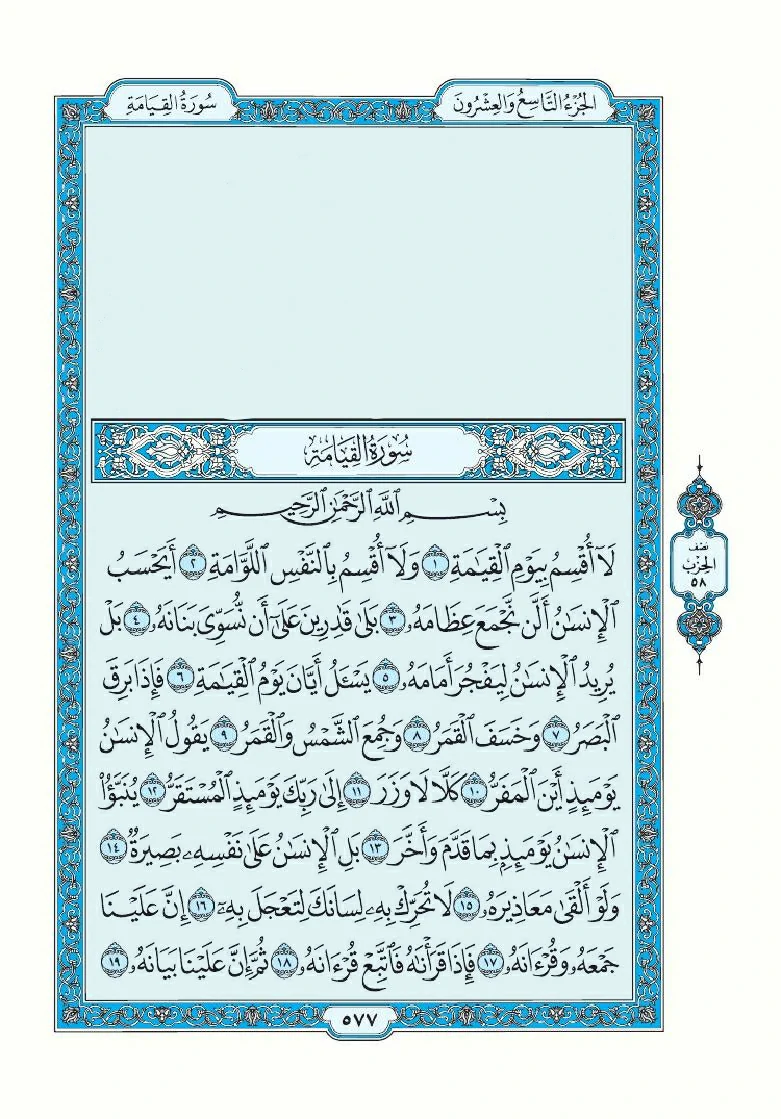 الجُزْءُ التَّاسِعُ وَالعِشْرُونَ
سُورَةُ القِيَامَةِ
سُورَةُ القِيَامَةِ
بِسْمِ ٱللَّهِ ٱلرَّحْمَٰنِ ٱلرَّحِيمِ
لَآ أُقْسِمُ بِيَوْمِ ٱلْقِيَٰمَةِ ١ وَلَآ أُقْسِمُ بِٱلنَّفْسِ ٱللَّوَّامَةِ ٢ أَيَحْسَبُ
ٱلْإِنسَٰنُ أَلَّن نَّجْمَعَ عِظَامَهُۥ ٣ بَلَىٰ قَٰدِرِينَ عَلَىٰٓ أَن نُّسَوِّىَ بَنَانَهُۥ ٤ بَلْ
يُرِيدُ ٱلْإِنسَٰنُ لِيَفْجُرَ أَمَامَهُۥ ٥ يَسْـَٔلُ أَيَّانَ يَوْمُ ٱلْقِيَٰمَةِ ٦ فَإِذَا بَرِقَ
ٱلْبَصَرُ ٧ وَخَسَفَ ٱلْقَمَرُ ٨ وَجُمِعَ ٱلشَّمْسُ وَٱلْقَمَرُ ٩ يَقُولُ ٱلْإِنسَٰنُ
يَوْمَئِذٍ أَيْنَ ٱلْمَفَرُّ ١٠ كَلَّا لَا وَزَرَ ١١ إِلَىٰ رَبِّكَ يَوْمَئِذٍ ٱلْمُسْتَقَرُّ ١٢ يُنَبَّؤُا۟
ٱلْإِنسَٰنُ يَوْمَئِذٍۭ بِمَا قَدَّمَ وَأَخَّرَ ١٣ بَلِ ٱلْإِنسَٰنُ عَلَىٰ نَفْسِهِۦ بَصِيرَةٌ ١٤
وَلَوْ أَلْقَىٰ مَعَاذِيرَهُۥ ١٥ لَا تُحَرِّكْ بِهِۦ لِسَانَكَ لِتَعْجَلَ بِهِۦٓ ١٦ إِنَّ عَلَيْنَا
جَمْعَهُۥ وَقُرْءَانَهُۥ ١٧ فَإِذَا قَرَأْنَٰهُ فَٱتَّبِعْ قُرْءَانَهُۥ ١٨ ثُمَّ إِنَّ عَلَيْنَا بَيَانَهُۥ ١٩
نصف
الحزب
٥٨
٥٧٧